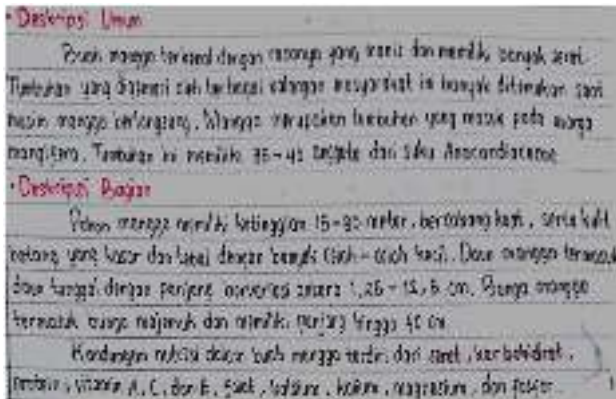 • Deskripsi Umum
Buah mangga terkenal dengan rasanya yang manis dan memiliki banyak serat.
Tumbuhan yang digemari oleh berbagai kalangan masyarakat ini banyak ditemukan saat
musim mangga berlangsung. Mangga merupakan tumbuhan yang masuk pada marga
mangifera. Tumbuhan ini memiliki 35-40 anggota dari suku Anacardiaceae
• Deskripsi Bagian
Pohon mangga memiliki ketinggian 15-30 meter, bercabang kuat, serta kulit
batang yang kasar dan tebal dengan banyak celah-celah kecil. Daun mangga termasuk
daun tunggal dengan panjang bervariasi antara 1,25-12,5 cm. Bunga mangga
termasuk bunga majemuk dan memiliki panjang hingga 40 cm
Kandungan nutrisi dalam buah mangga terdiri dari serat, karbohidrat,
protein, vitamin A, C, dan kalsium, kalium, magnesium, dan fosfor.